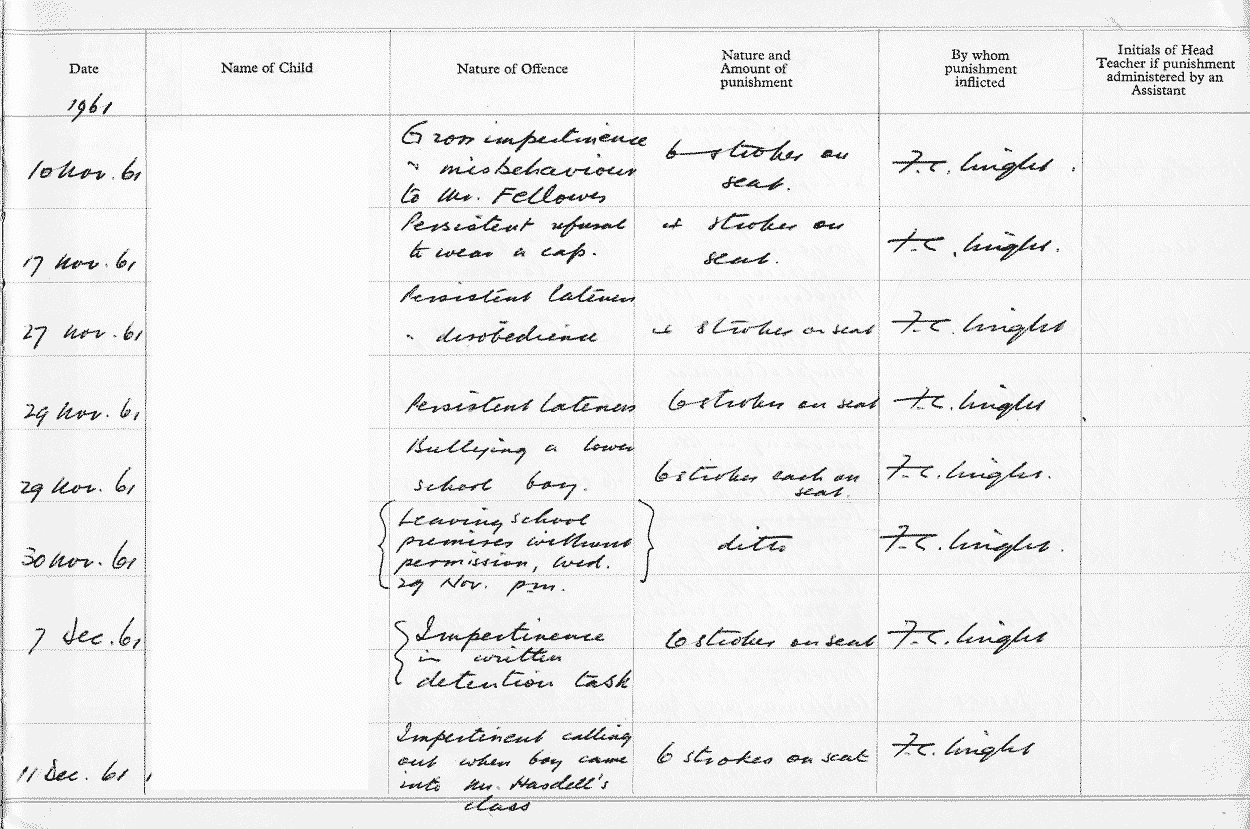 Date
Name of Child
Nature of Offence
Nature and
Amount of
punishment
By whom
punishment
inflicted
Initials of Head
Teacher if punishment
administered by an
Assistant
1961
10 Nov. 61
Gross impertinence
" misbehaviour
to Mr. Fellowes
6 strokes on
seat.
F.C.
17 Nov. 61
Persistent refusal
to wear a cap.
strokes on
seat.
F.C.
27 Nov. 61
Persistent lateness
" disobedience
strokes on seat
F.C.
29 Nov. 61
Persistent lateness
6 strokes on seat
F.C.
29 Nov. 61
Bullying a lower
school boy.
6 strokes each on
seat.
F.C.
30 Nov. 61
Leaving school
premises without
permission, Wed.
29 Nov. pm.
ditto
F.C.
7 Dec. 61
Impertinence
in written
detention task
6 strokes on seat
F.C.
11 Dec. 61
Impertinent calling
out when boy came
into Mr. Hasdell's
class
6 strokes on seat
F.C.